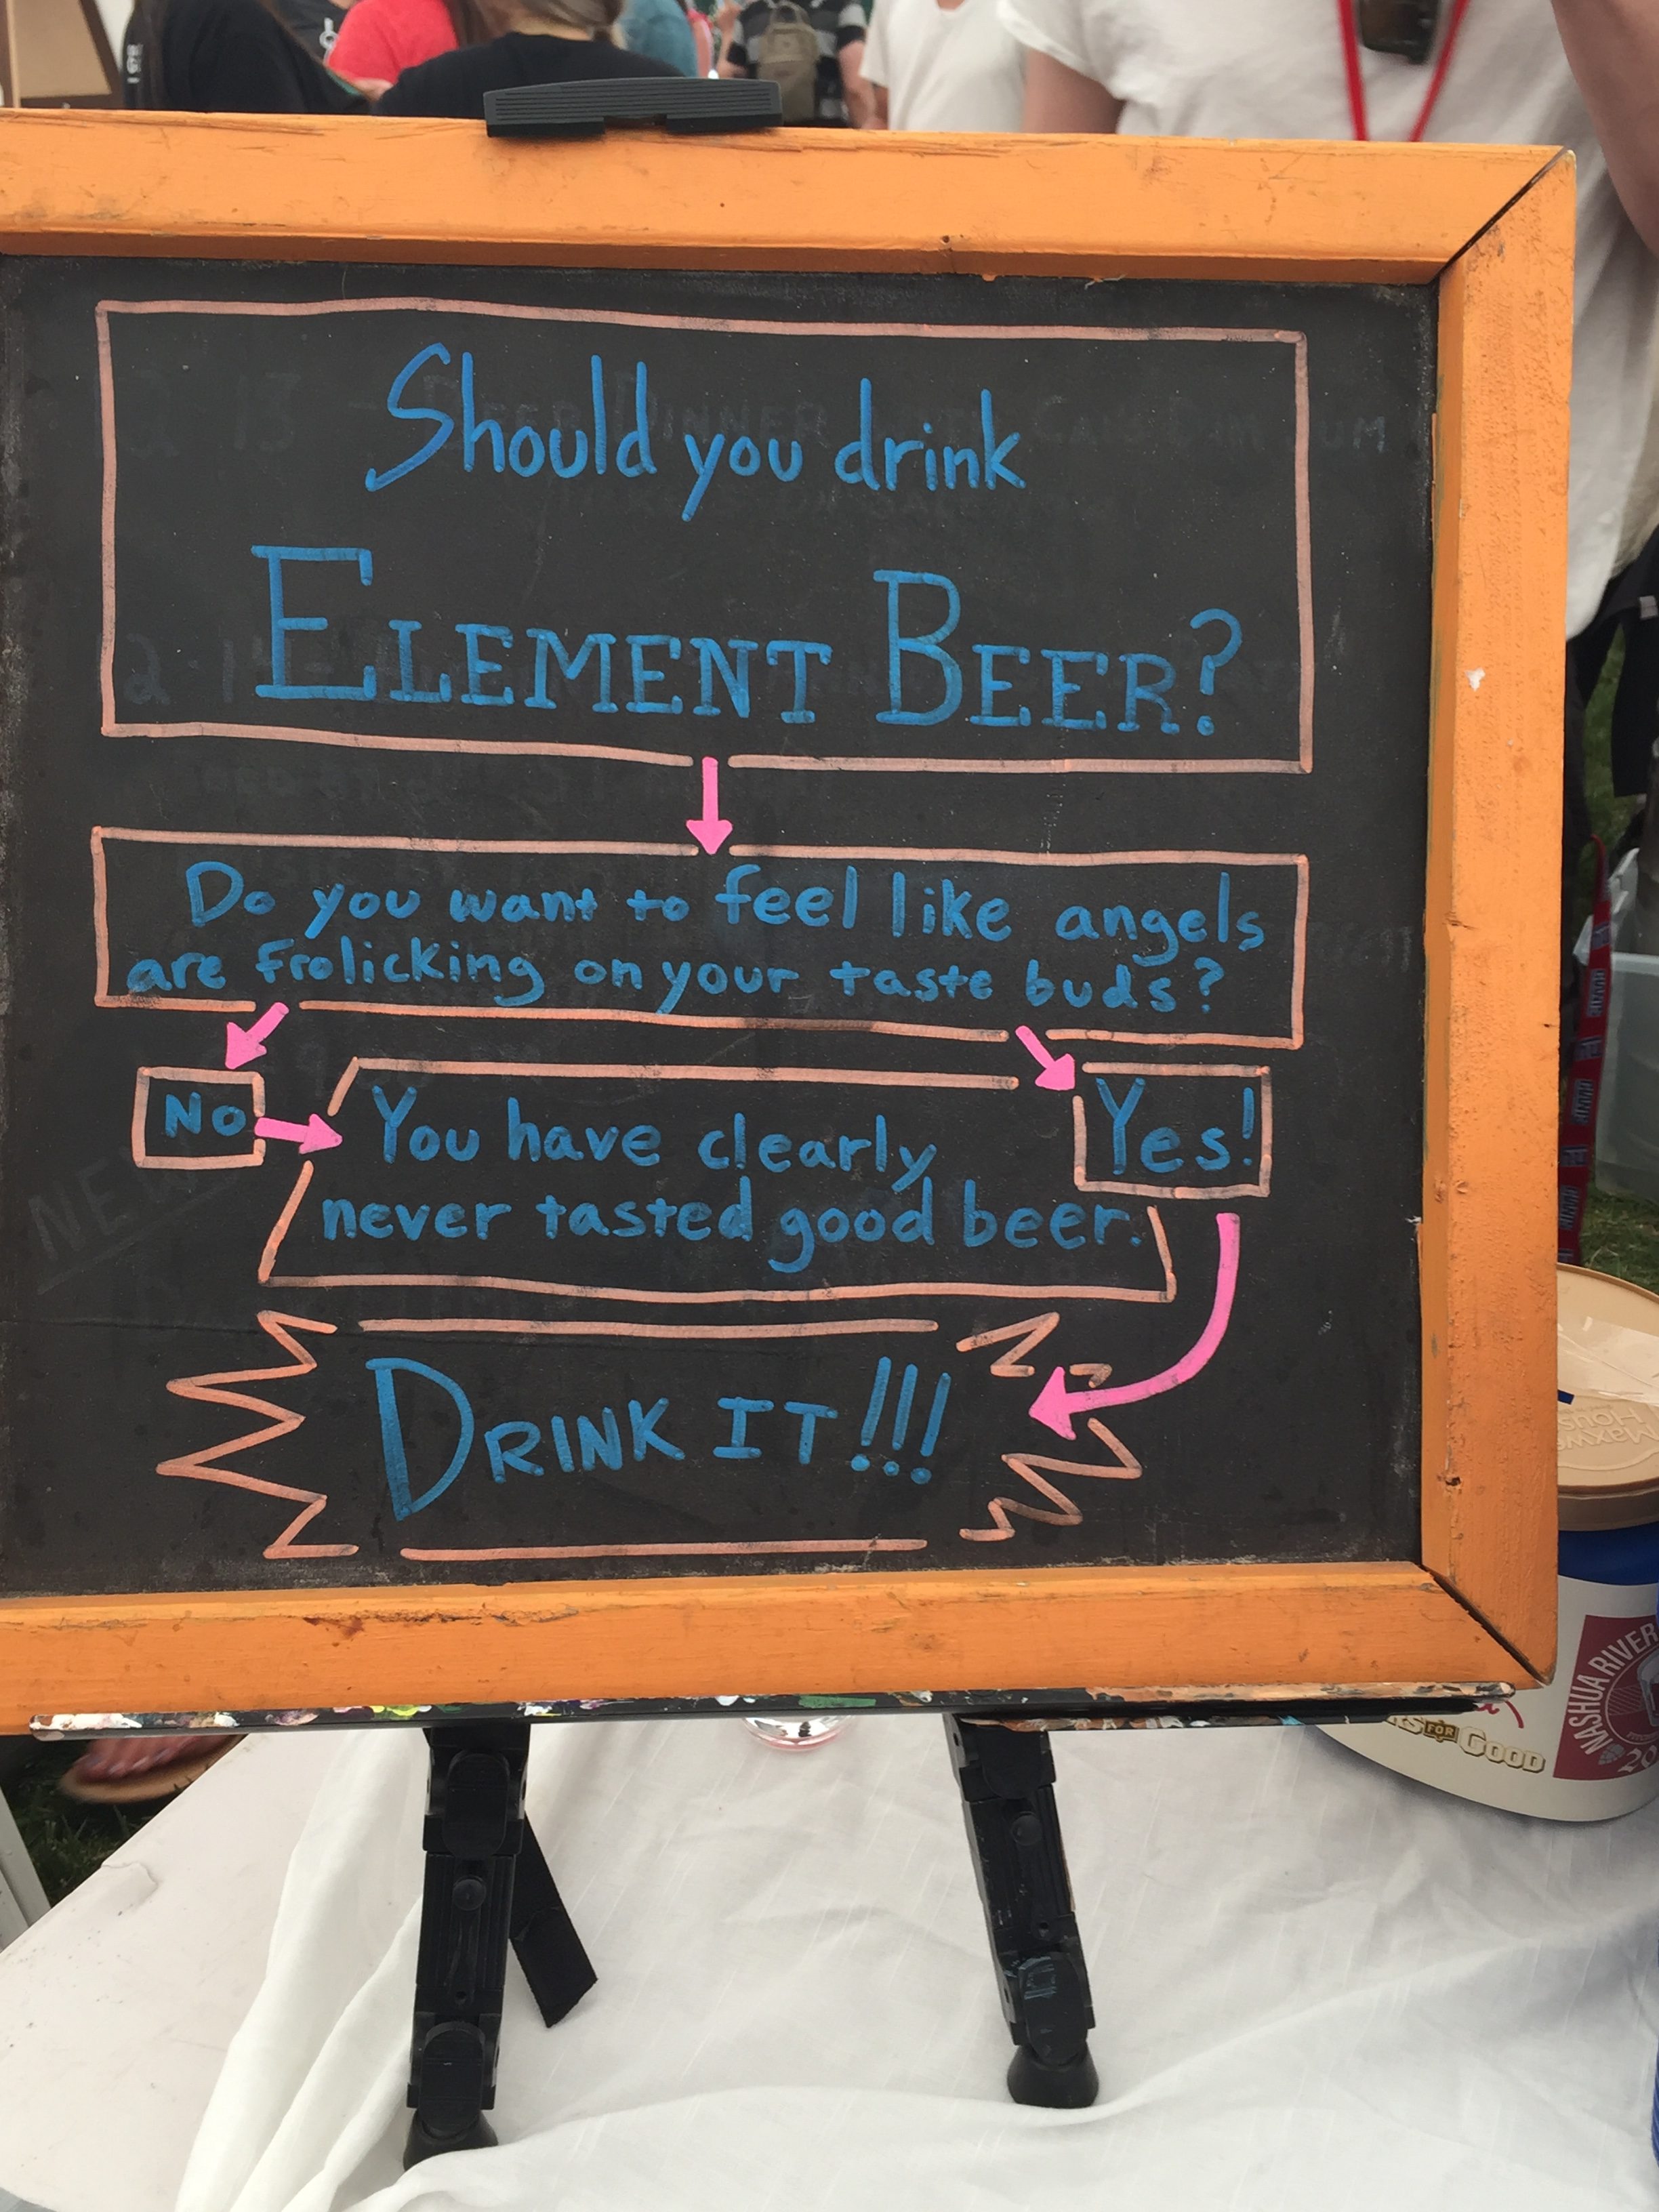 Should you drink
ELEMENT BEER?
Do you want to feel like angels
are frolicking on your taste buds?
No
You have clearly
never tasted good beer.
Yes!
DRINK IT!!!
FOR GOOD
NASHUA RIVER